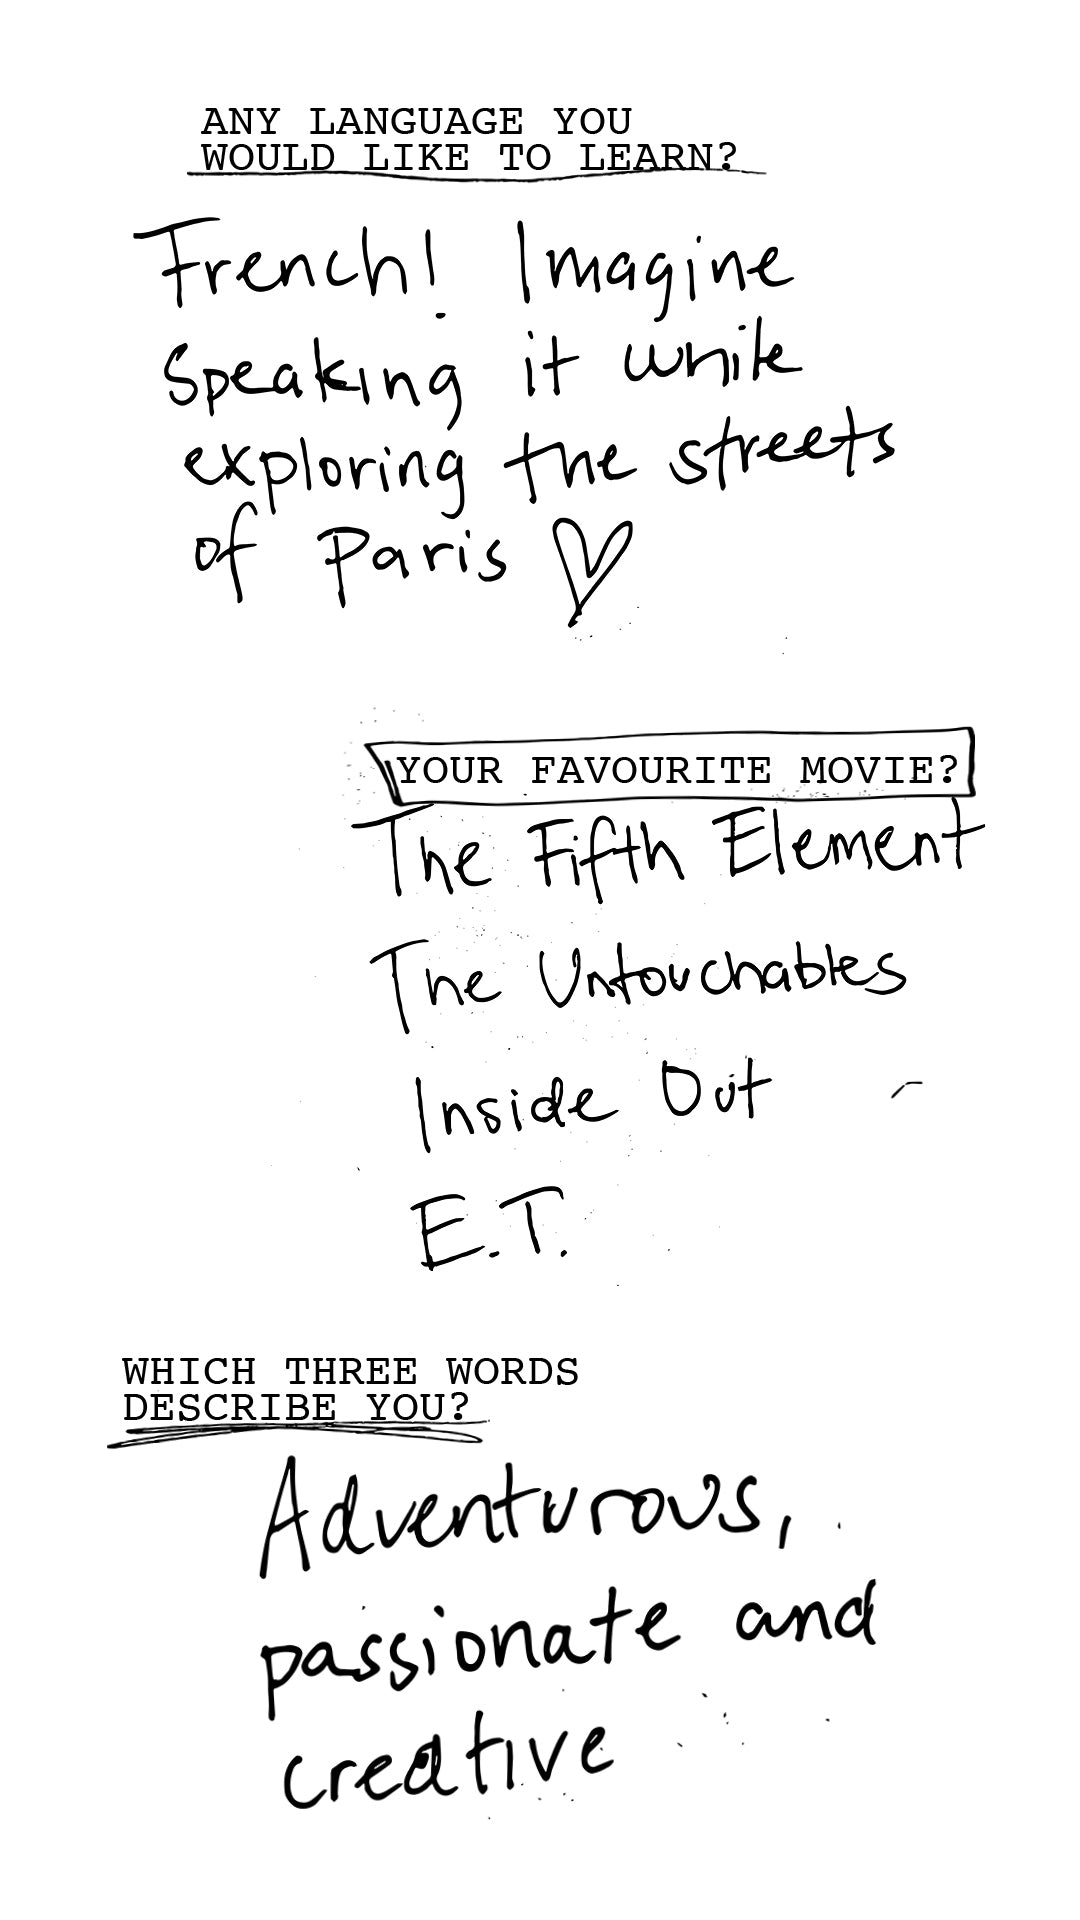 ANY LANGUAGE YOU
WOULD LIKE TO LEARN?
French! Imagine
speaking it while
exploring the streets
of Paris
YOUR FAVOURITE MOVIE?
The Fifth Element
The Untouchables
Inside Out
E.T.
WHICH THREE WORDS
DESCRIBE YOU?
Adventurous,
passionate and
creative